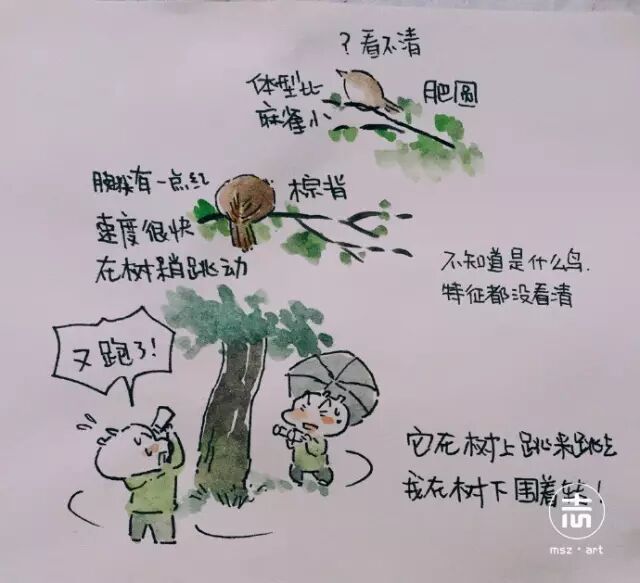 ?看不清
体型比
麻雀小
肥圆
胸口有一点红
棕背
速度很快
在树梢跳动
不知道是什么鸟.
特征都没看清
又跑了!
它在树上跳来跳去
我在树下围着转!
msz·art